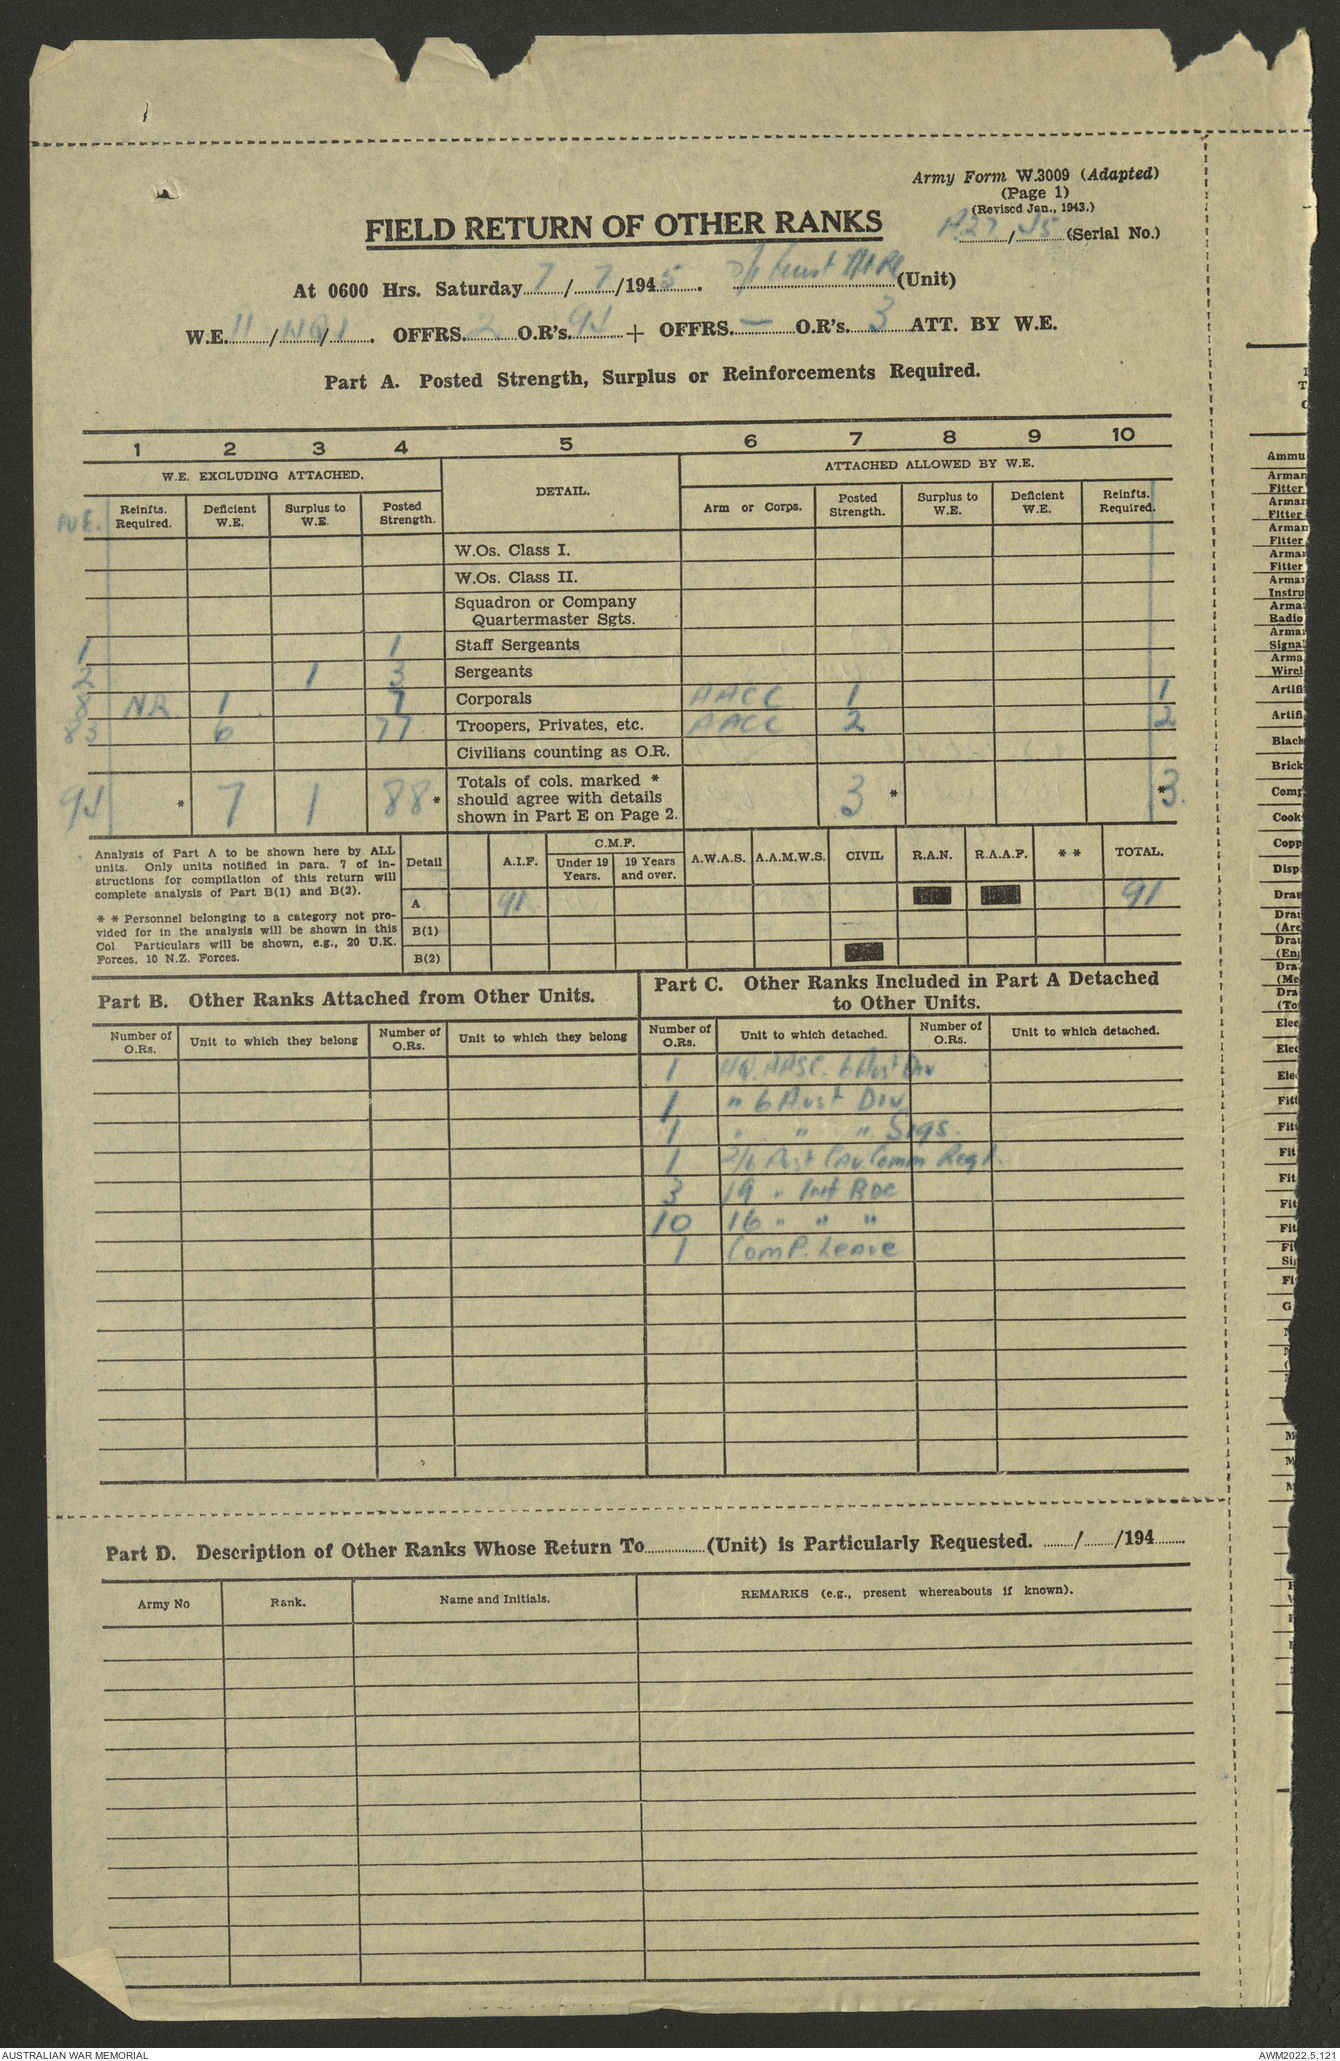 Army Form W.3009 (Adapted)
(Page 1)
(Revised Jan., 1943.)
FIELD RETURN OF OTHER RANKS
A27/45 (Serial No.)
At 0600 Hrs. Saturday 7/7/1945. (Unit)
W.E. 11/ / . OFFRS. 2 O.R's. 94 + OFFRS. — O.R's. 3 ATT. BY W.E.
Part A. Posted Strength, Surplus or Reinforcements Required.
1 2 3 4 5 6 7 8 9 10
W.E. EXCLUDING ATTACHED. DETAIL. ATTACHED ALLOWED BY W.E.
W.E. Reinfts. Required. Deficient W.E. Surplus to W.E. Posted Strength. Arm or Corps. Posted Strength. Surplus to W.E. Deficient W.E. Reinfts. Required.
W.Os. Class I.
W.Os. Class II.
Squadron or Company
Quartermaster Sgts.
1 1 Staff Sergeants
2 1 3 Sergeants
8 NR 1 7 Corporals AACC 1 1
83 6 77 Troopers, Privates, etc. AACC 2 2
Civilians counting as O.R.
94 * 7 1 88 * Totals of cols. marked * should agree with details shown in Part E on Page 2. 3 * * 3.
Analysis of Part A to be shown here by ALL
units. Only units notified in para. 7 of in-
structions for compilation of this return will
complete analysis of Part B(1) and B(2).
* * Personnel belonging to a category not pro-
vided for in the analysis will be shown in this
Col Particulars will be shown, e.g., 20 U.K.
Forces, 10 N.Z. Forces.
Detail A.I.F. C.M.F. Under 19 Years. 19 Years and over. A.W.A.S. A.A.M.W.S. CIVIL R.A.N. R.A.A.F. * * TOTAL.
A 91 91
B(1)
B(2)
Part B. Other Ranks Attached from Other Units.
Part C. Other Ranks Included in Part A Detached
to Other Units.
Number of O.Rs. Unit to which they belong Number of O.Rs. Unit to which they belong Number of O.Rs. Unit to which detached. Number of O.Rs. Unit to which detached.
1 HQ. AASC. 6 Aust Div
1 " 6 Aust Div
1 " " " Sigs.
1 2/6 Aust Cav Comm Regt.
3 19 " Inf BDE
10 16 " " "
1 Comp. Leave
Part D. Description of Other Ranks Whose Return To (Unit) is Particularly Requested. / /194
Army No Rank. Name and Initials. REMARKS (e.g., present whereabouts if known).
Ammu
Arman
Fitter
Arman
Fitter
Arman
Fitter
Arma
Fitter
Arma
Instru
Arma
Radio
Arma
Signa
Arma
Wirel
Artifi
Artifi
Black
Brick
Comp
Cook
Copp
Disp
Drau
Drau
(Arc
Drau
(En
Dra
(Me
Dra
(To
Elec
Elec
Ele
Fitt
Fit
Fit
Fit
Fit
Fit
Fi
Si
Fi
G
M
M
AUSTRALIAN WAR MEMORIAL
AWM2022.5.121